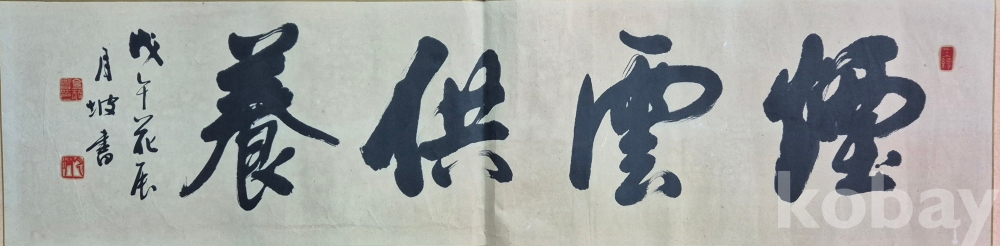 煙雲供養
戊午花辰
月坡書
kobay